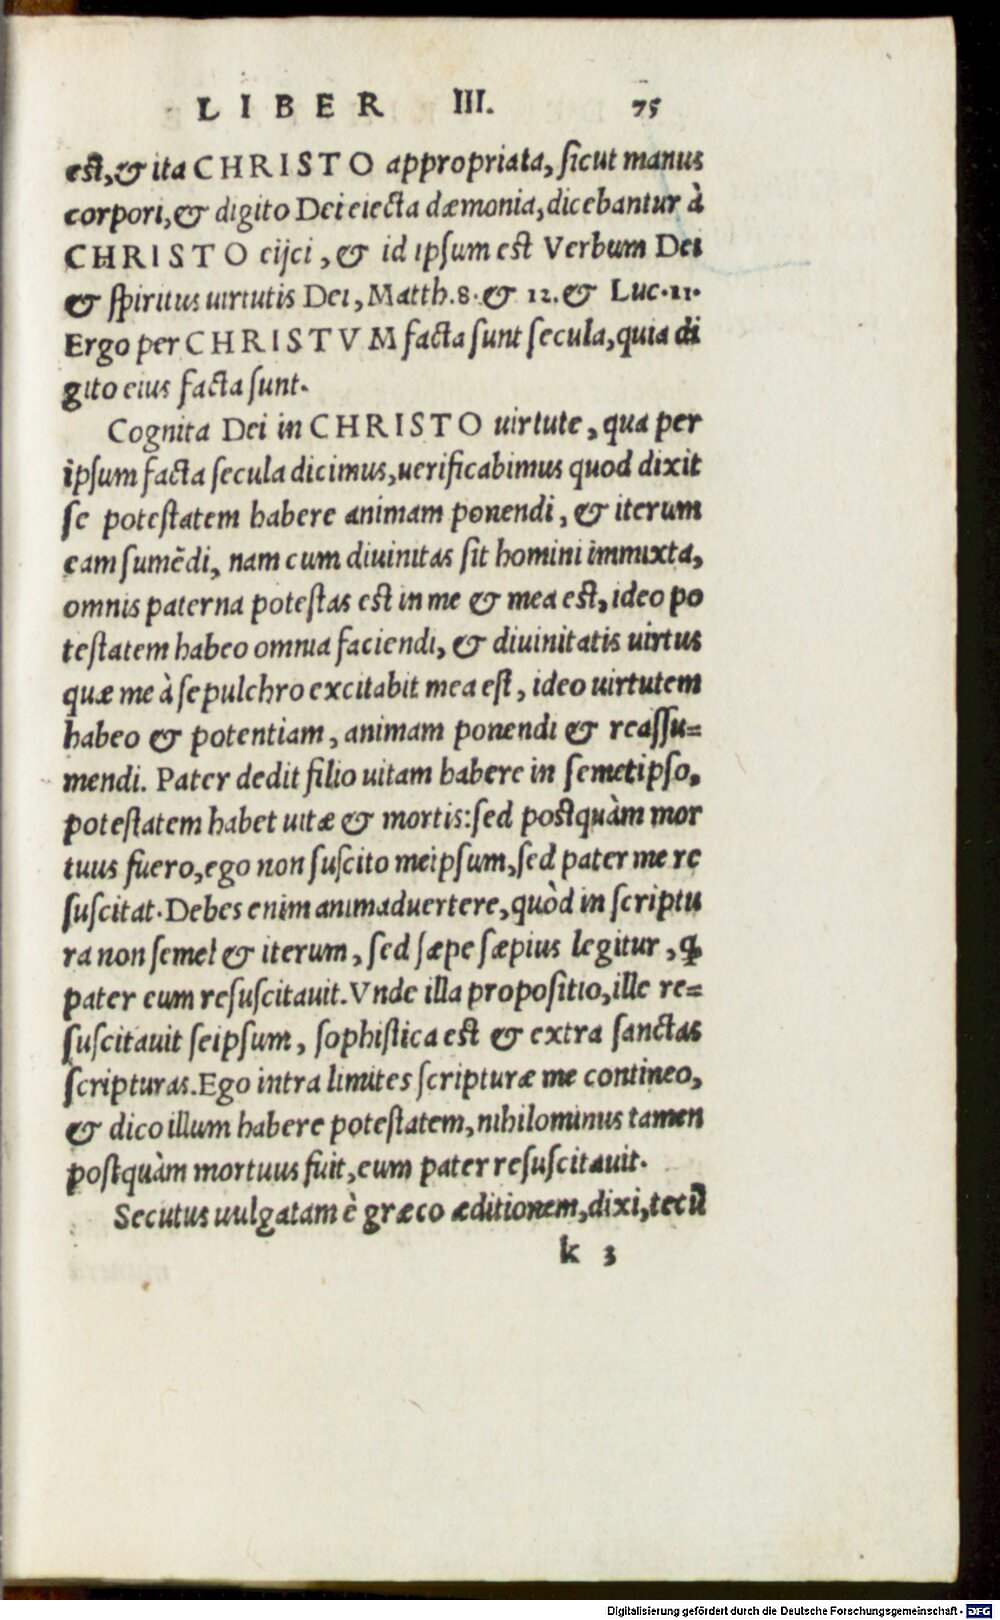 LIBER III. 75
est, & ita CHRISTO appropriata, sicut manus
corpori, & digito Dei eiecta dæmonia, dicebantur à
CHRISTO eijci, & id ipsum est Verbum Dei
& spiritus uirtutis Dei, Matth. 8. & 12. & Luc. 11.
Ergo per CHRISTVM facta sunt secula, quia di
gito eius facta sunt.
Cognita Dei in CHRISTO uirtute, qua per
ipsum facta secula dicimus, uerificabimus quod dixit
se potestatem habere animam ponendi, & iterum
eam sumẽdi, nam cum diuinitas sit homini immixta,
omnis paterna potestas est in me & mea est, ideo po
testatem habeo omnia faciendi, & diuinitatis uirtus
quæ me à sepulchro excitabit mea est, ideo uirtutem
habeo & potentiam, animam ponendi & reassu=
mendi. Pater dedit filio uitam habere in semetipso,
potestatem habet uitæ & mortis: sed postquàm mor
tuus fuero, ego non suscito meipsum, sed pater me re
suscitat. Debes enim animaduertere, quòd in scriptu
ra non semel & iterum, sed sæpe sæpius legitur, ꝙ
pater eum resuscitauit. Vnde illa propositio, ille re=
suscitauit seipsum, sophistica est & extra sanctas
scripturas. Ego intra limites scripturæ me contineo,
& dico illum habere potestatem, nihilominus tamen
postquàm mortuus fuit, eum pater resuscitauit.
Secutus uulgatam è græco æditionem, dixi, tecũ
k 3
Digitalisierung gefördert durch die Deutsche Forschungsgemeinschaft - DFG